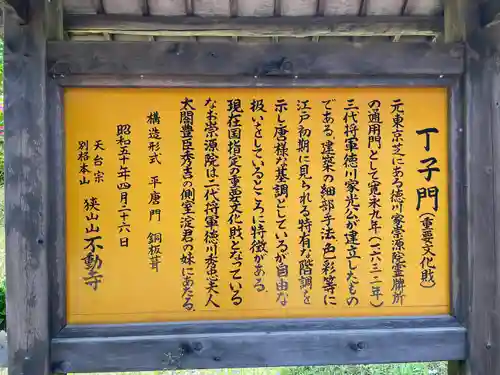 丁子門(重要文化財)
元東京芝にある徳川家崇源院霊牌所
の通用門として寛永九年(一六三二年)
三代将軍徳川家光公が建立したもの
である。建築の細部手法、色彩等に
江戸初期に見られる特有な階調を
示し唐様な基調としているが自由な
扱いをしているところに特徴がある。
現在国指定の重要文化財となっている
なお崇源院は二代将軍徳川秀忠夫人
太閤豊臣秀吉の側室淀君の妹にあたる。
構造形式 平唐門 銅板葺
昭和五十年四月二十六日
天台宗
別格本山
狭山山不動寺